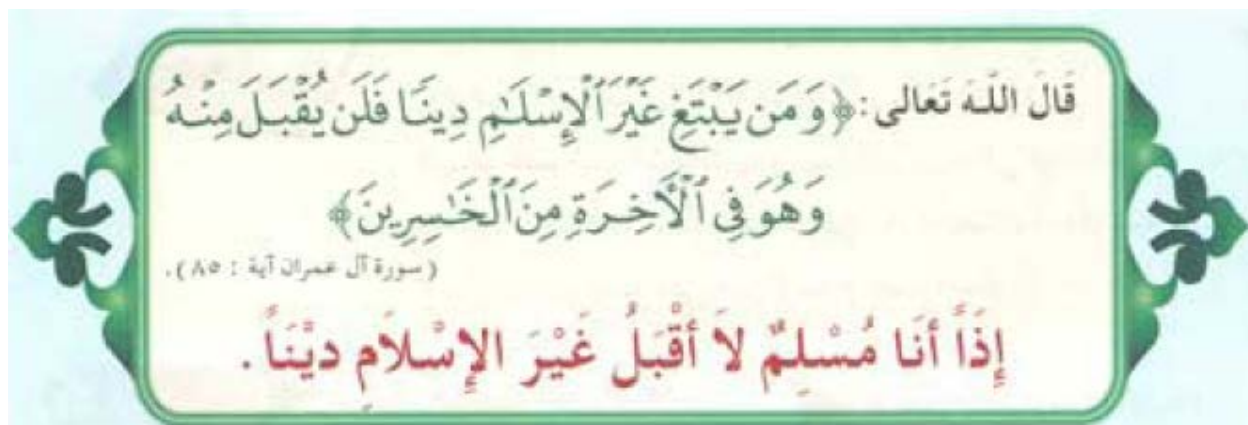 قَالَ اللَّهُ تَعَالى: ﴿وَمَن يَبْتَغِ غَيْرَ ٱلْإِسْلَـٰمِ دِينًا فَلَن يُقْبَلَ مِنْهُ
وَهُوَ فِى ٱلْأَخِرَةِ مِنَ ٱلْخَـٰسِرِينَ﴾
(سورة آل عمران آية : ٨٥).
إِذَاً أنَا مُسْلِمٌ لاَ أقْبَلُ غَيْرَ الإِسْلاَمِ ديْنَاً .